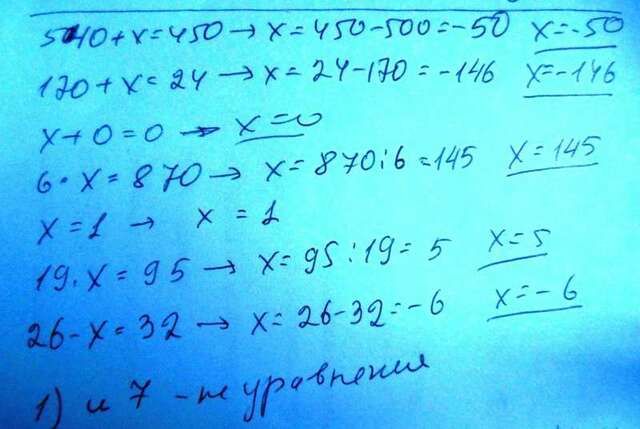 540+x=450 → x=450-500=-50 x=-50
170+x=24 → x=24-170=-146 x=-146
x+0=0 → x=0
6·x=870 → x=870:6=145 x=145
x=1 → x=1
19·x=95 → x=95:19=5 x=5
26-x=32 → x=26-32=-6 x=-6
1) и 7 - не уравнения